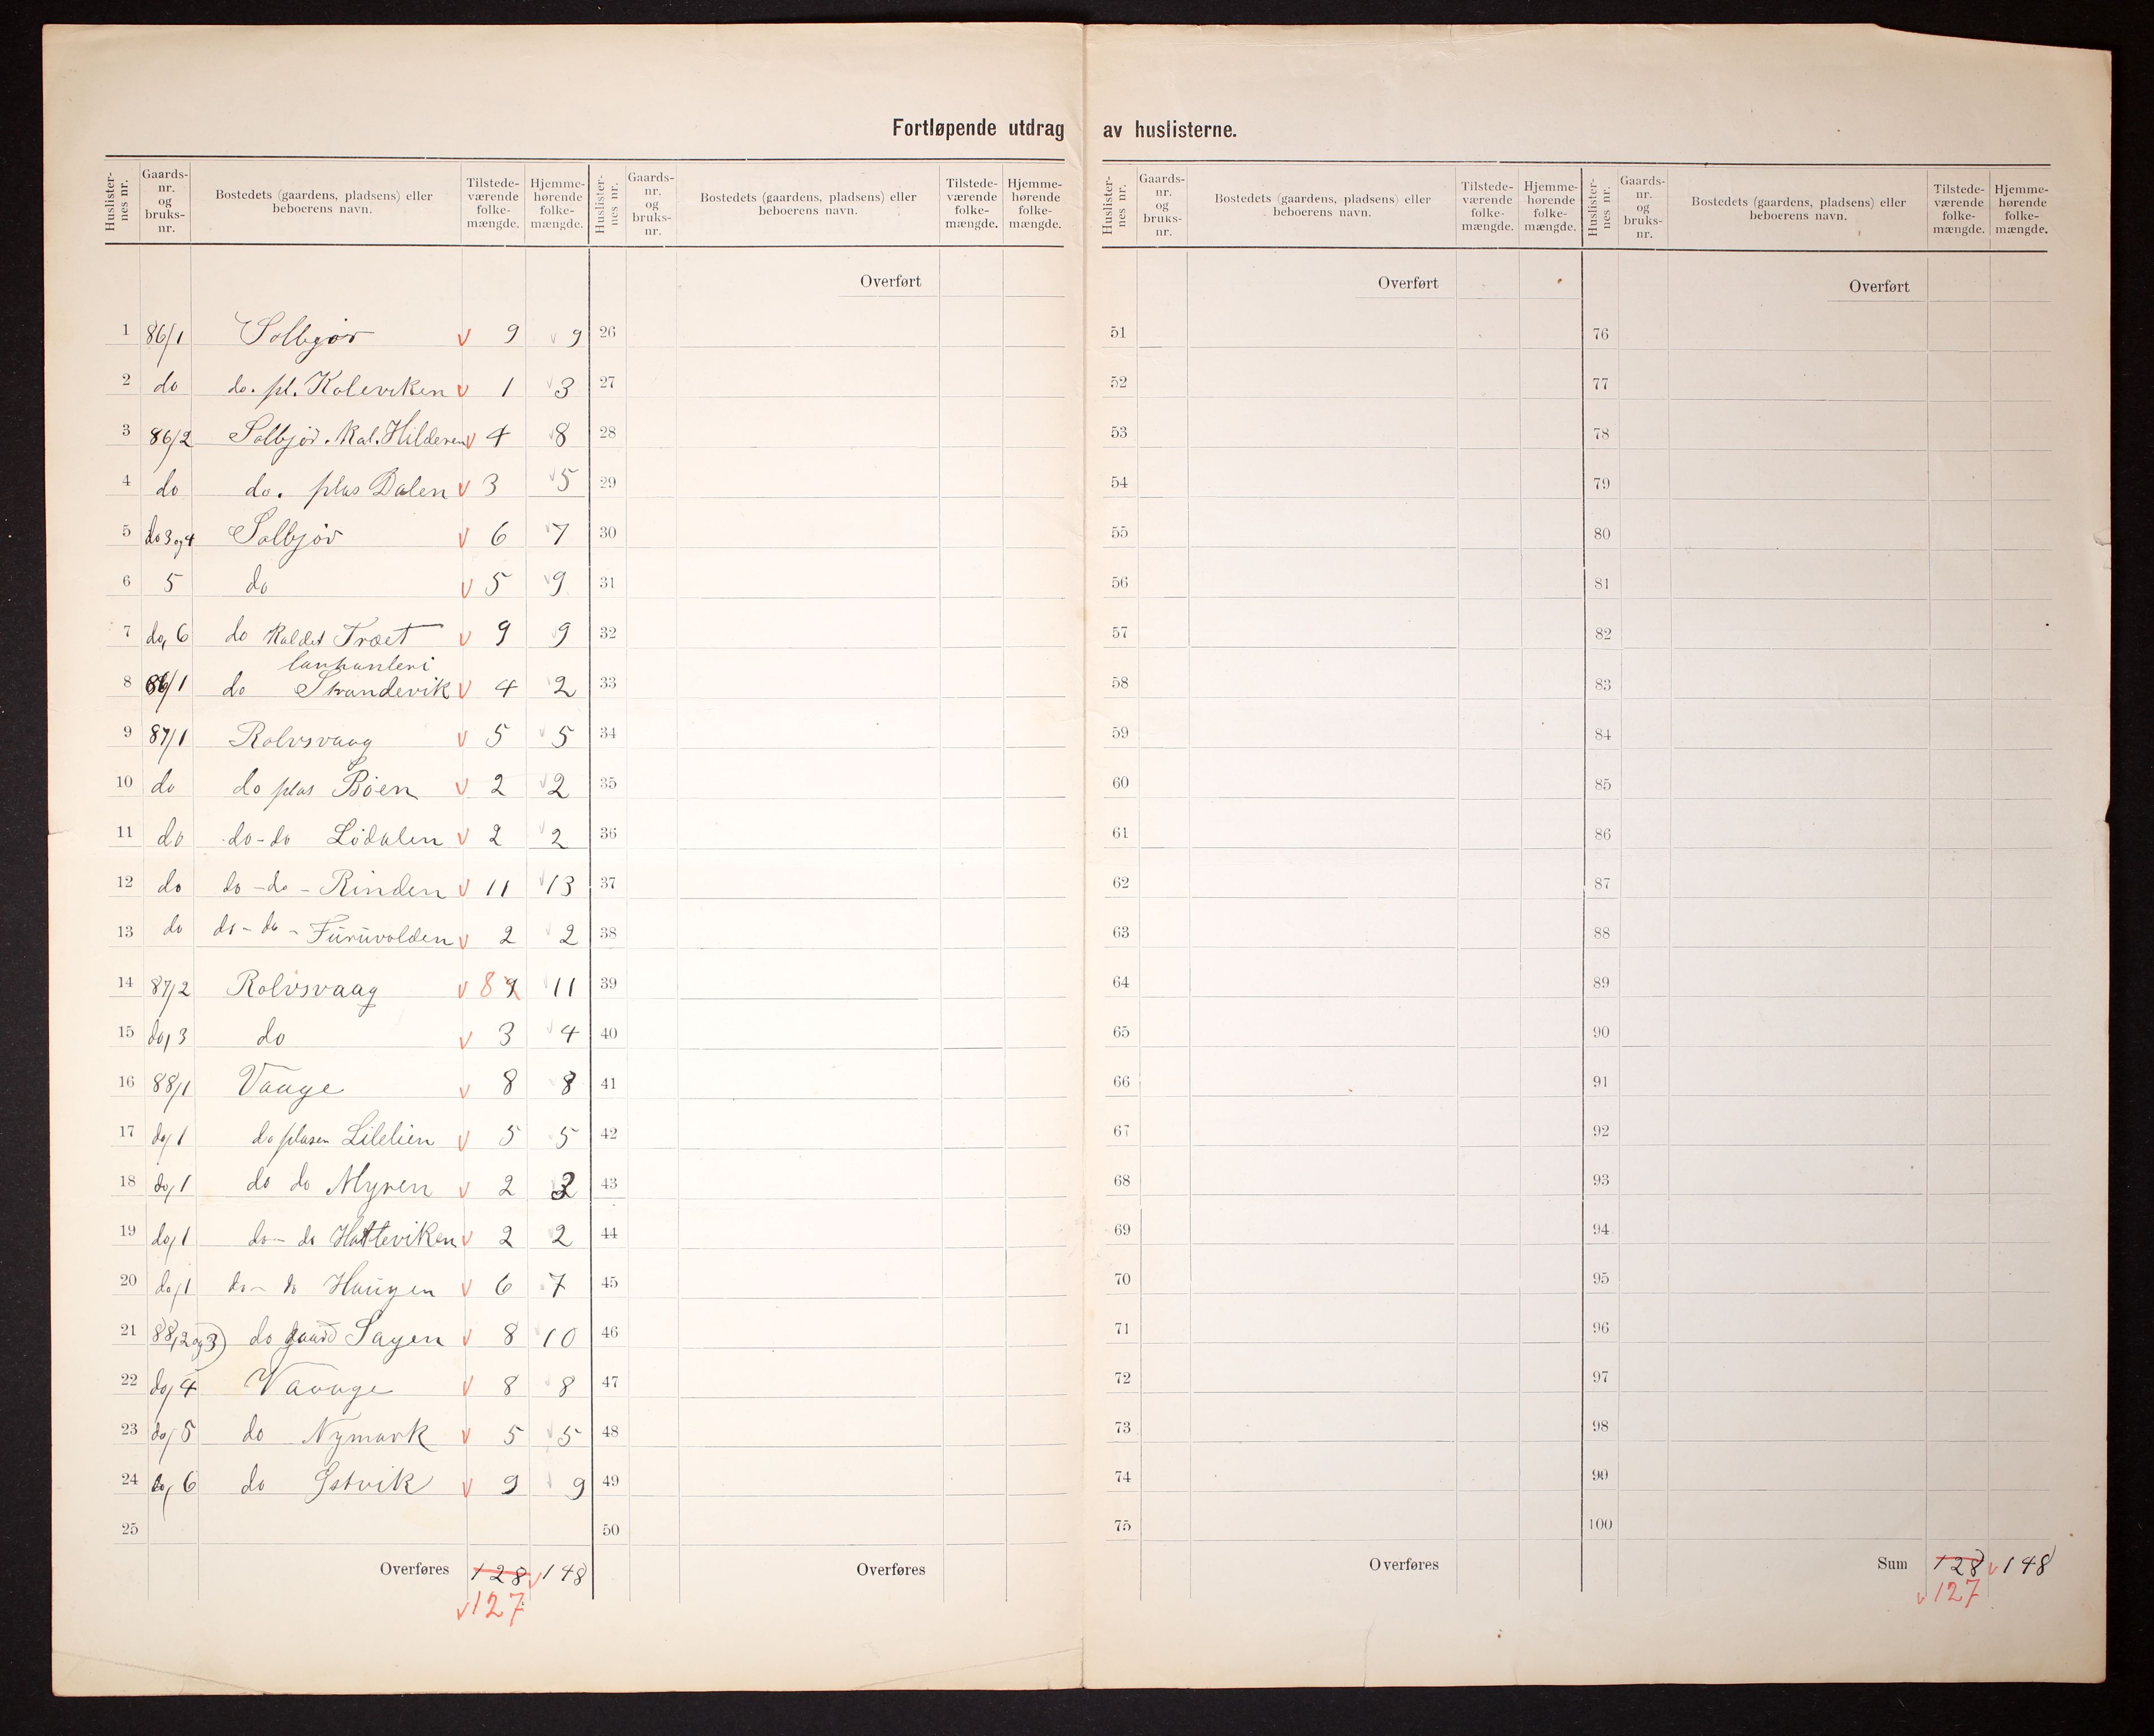 Fortløpende utdrag av huslisterne.
Huslister-nes nr. | Gaards-nr. og bruks-nr. | Bostedets (gaardens, pladsens) eller beboerens navn. | Tilstede-værende folke-mængde. | Hjemme-hørende folke-mængde. | Huslister-nes nr. | Gaards-nr. og bruks-nr. | Bostedets (gaardens, pladsens) eller beboerens navn. | Tilstede-værende folke-mængde. | Hjemme-hørende folke-mængde. | Huslister-nes nr. | Gaards-nr. og bruks-nr. | Bostedets (gaardens, pladsens) eller beboerens navn. | Tilstede-værende folke-mængde. | Hjemme-hørende folke-mængde. | Huslister-nes nr. | Gaards-nr. og bruks-nr. | Bostedets (gaardens, pladsens) eller beboerens navn. | Tilstede-værende folke-mængde. | Hjemme-hørende folke-mængde.
Overført Overført Overført
1 86/1 Solbjør v 9 v 9 26 51 76
2 do do. pl. Koleviken v 1 v 3 27 52 77
3 86/2 Solbjør. Kal. Hilderen v 4 v 8 28 53 78
4 do do. plas Dalen v 3 v 5 29 54 79
5 do 3 og 4 Solbjør v 6 v 7 30 55 80
6 5 do v 5 v 9 31 56 81
7 do, 6 do Kaldet Træet v 9 v 9 32 57 82
lanhanleri
8 86/1 do Strandevik v 4 v 2 33 58 83
9 87/1 Rolvsvaag v 5 v 5 34 59 84
10 do do plas Bøen v 2 v 2 35 60 85
11 do do-do Lødalen v 2 v 2 36 61 86
12 do do-do-Rinden v 11 v 13 37 62 87
13 do do-do-Furuvolden v 2 v 2 38 63 88
14 87/2 Rolvsvaag v 8 9 v 11 39 64 89
15 do, 3 do v 3 v 4 40 65 90
16 88/1 Vaage v 8 8 41 66 91
17 do, 1 do plasen Lilelien v 5 5 42 67 92
18 do, 1 do do Myren v 2 3 43 68 93
19 do, 1 do-do Hatteviken v 2 2 44 69 94
20 do, 1 do-do Haugen v 6 7 45 70 95
21 88, 2 og 3) do gaard Sagen v 8 10 46 71 96
22 do, 4 Vaage v 8 8 47 72 97
23 do, 5 do Nymark v 5 v 5 48 73 98
24 do, 6 do Østvik v 9 v 9 49 74 99
25 50 75 100
Overføres 128 v 148 Overføres Overføres Sum 128 v 148
v 127 v 127